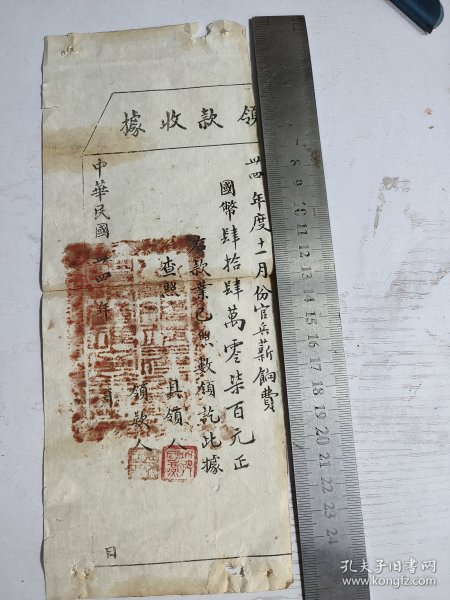 領款收據
卅四年度十一月份官兵薪餉費
國幣肆拾肆萬零柒百元正
右款業已照數領訖此據
查照
具領人
領款人
中華民國卅四年 月 日
8 9 10 11 12 13 14 15 16 17 18 19 20 21 22 23 24
孔夫子旧书网
www.kongfz.com